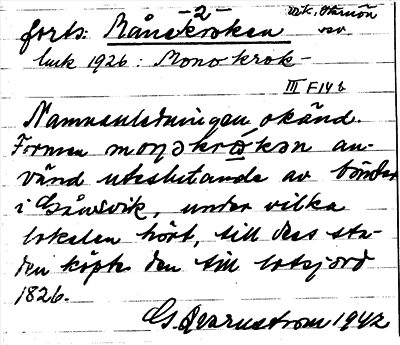 -2-
forts: Månskroken
luk 1926: Monokrok-
III F 14 b
Namnanledningen okänd.
Formen monəkrókən an-
vänd uteslutande av bönder
i Gåsvik, under vilka
lokalen hört, till dess sta-
ten köpte den till lotsjord
1826.
G. Qvarnström 1942